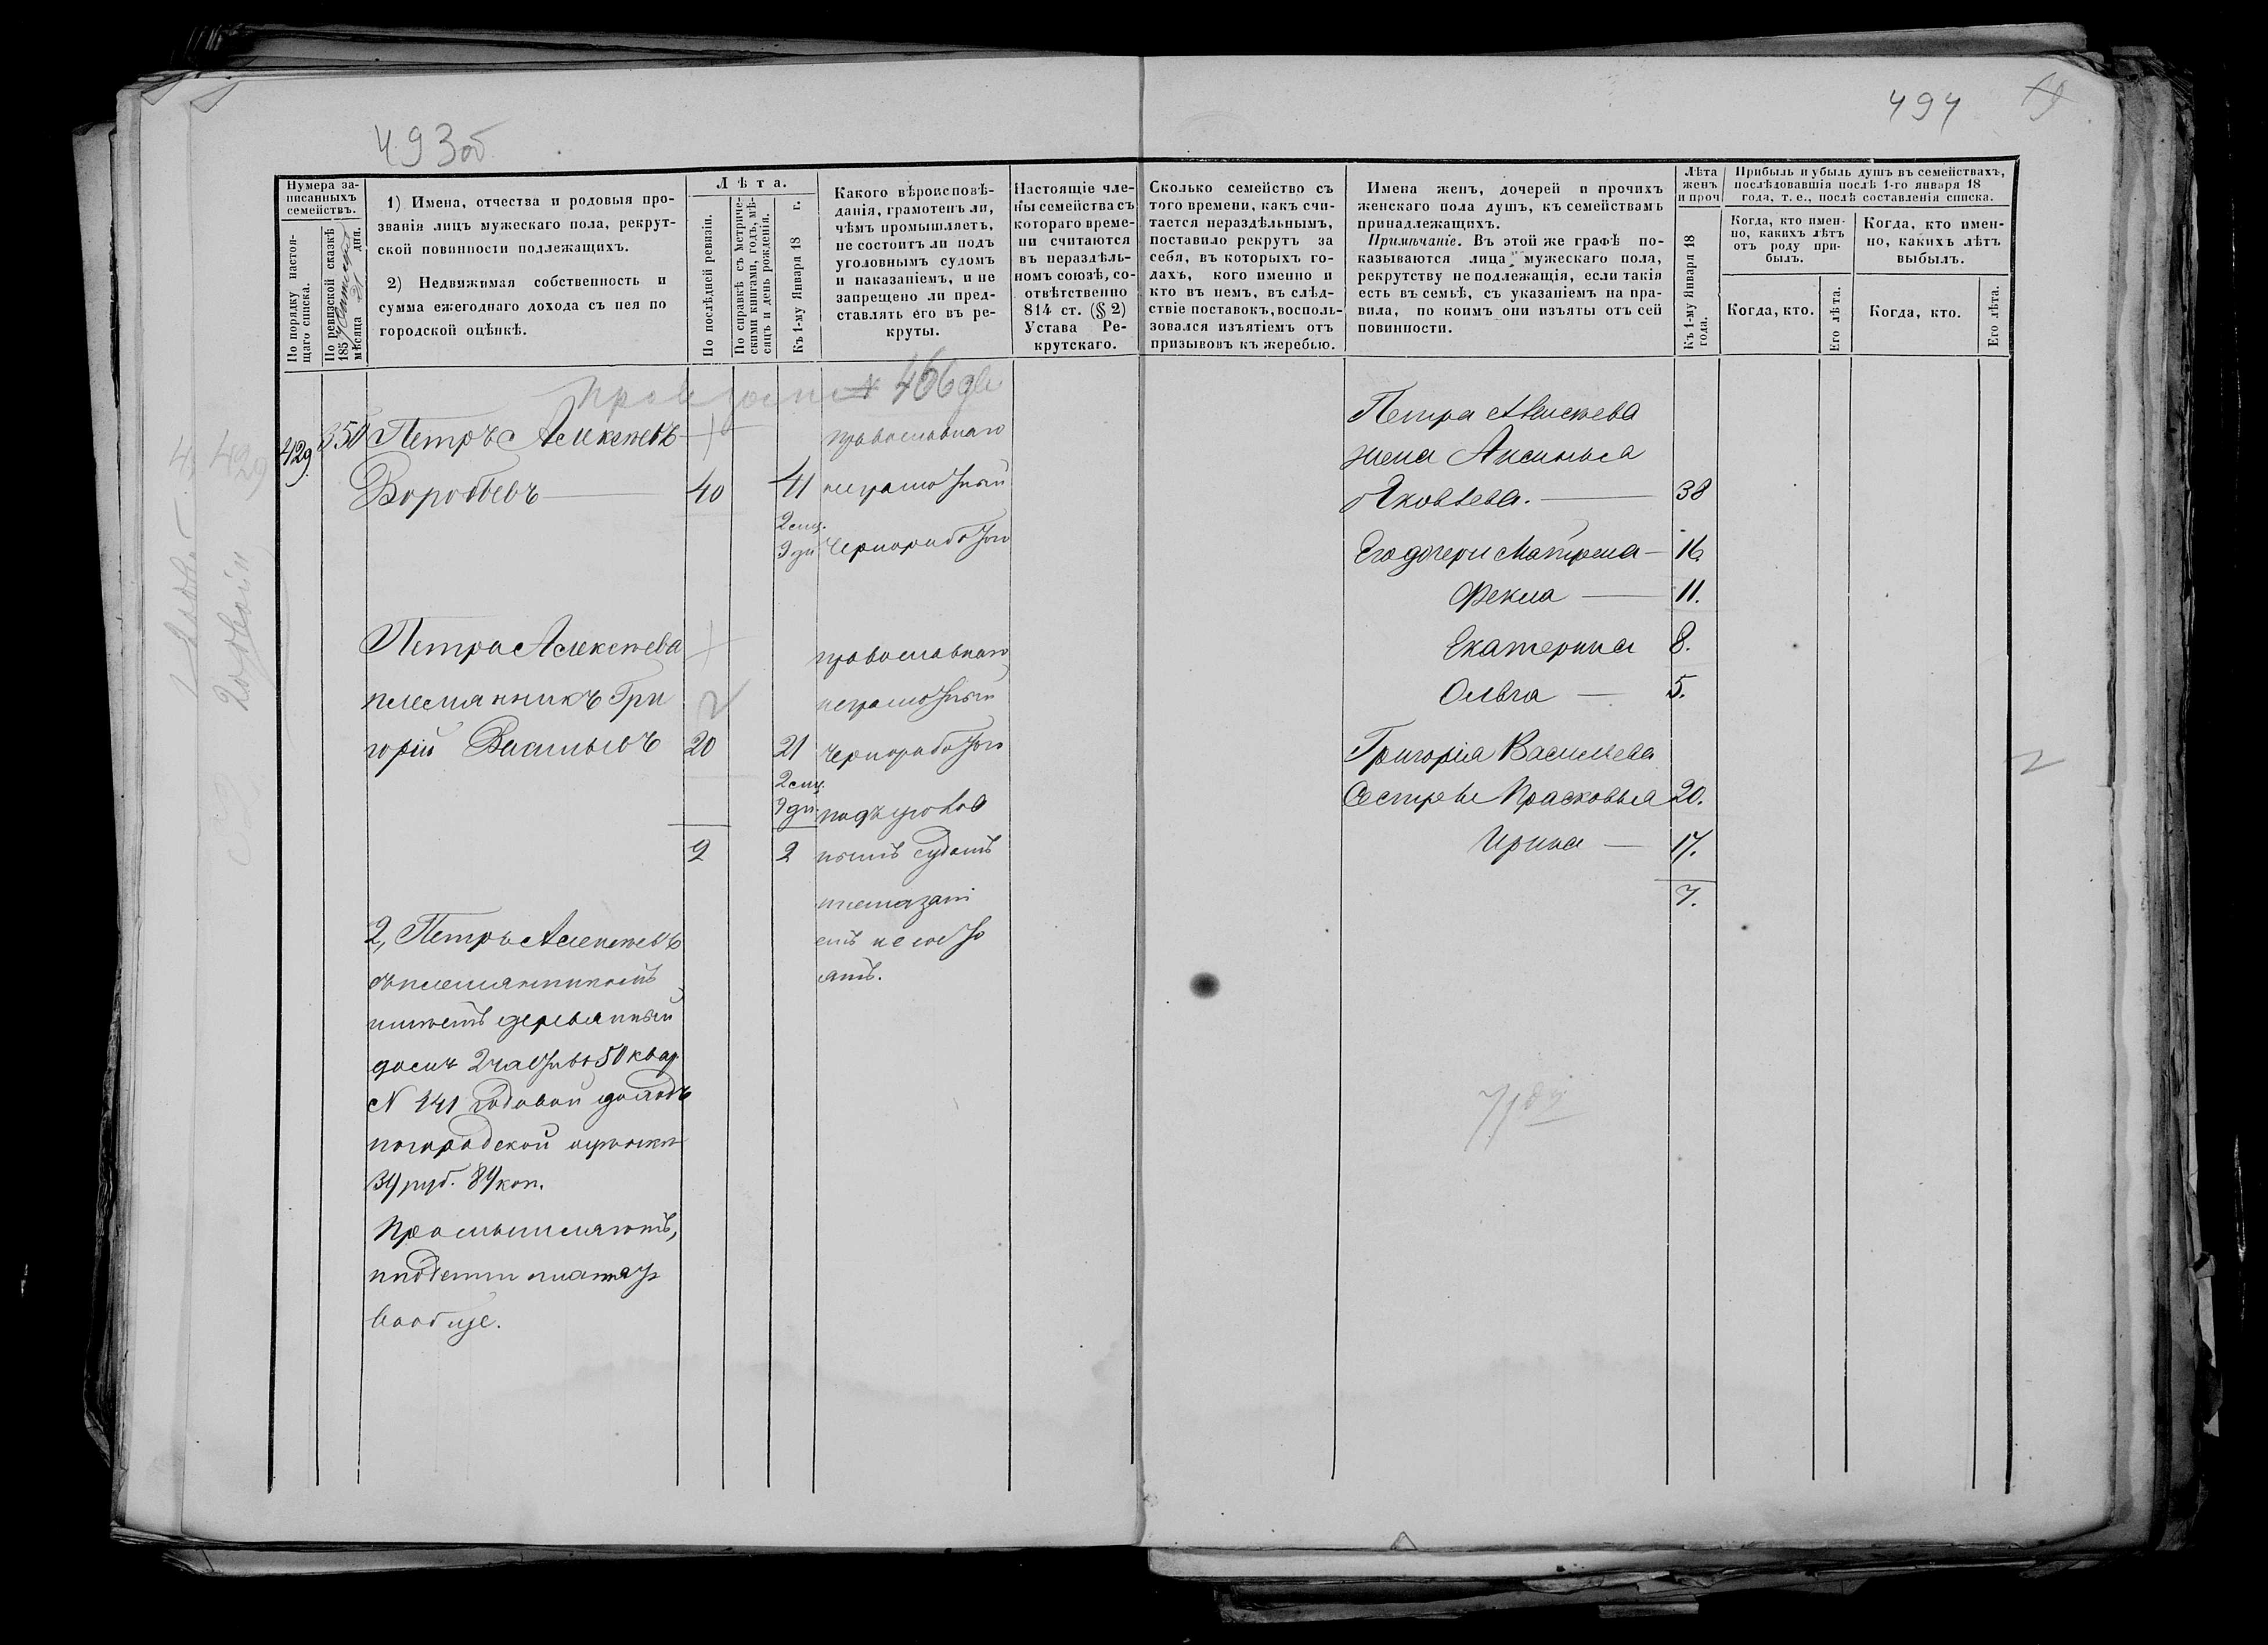 493об
494
Нумера за-
писанныхъ
семействъ.
По порядку настоя-
щаго списка.
По ревизской сказкѣ
185
мѣсяца 21 дня.
1) Имена, отчества и родовыя про-
званія лицъ мужескаго пола, рекрут-
ской повинности подлежащихъ.
2) Недвижимая собственность и
сумма ежегоднаго дохода съ нея по
городской оцѣнкѣ.
Лѣта.
По послѣдней ревизіи.
По справкѣ съ метриче-
скими книгами, годъ, мѣ-
сяцъ и день рожденія.
Къ 1-му Января 18 г.
Какого вѣроисповѣ-
данія, грамотенъ ли,
чѣмъ промышляетъ,
не состоитъ ли подъ
уголовнымъ судомъ
и наказаніемъ, и не
запрещено ли пред-
ставлять его въ ре-
круты.
Настоящіе чле-
ны семейства съ
котораго време-
ни считаются
въ нераздѣль-
номъ союзѣ, со-
отвѣтственно
814 ст. (§ 2)
Устава Ре-
крутскаго.
Сколько семейство съ
того времени, какъ счи-
тается нераздѣльнымъ,
поставило рекрутъ за
себя, въ которыхъ го-
дахъ, кого именно и
кто въ немъ, въ слѣд-
ствіе поставокъ, восполь-
зовался изъятіемъ отъ
призывовъ къ жеребью.
Имена женъ, дочерей и прочихъ
женскаго пола душъ, къ семействамъ
принадлежащихъ.
Примѣчаніе. Въ этой же графѣ по-
казываются лица мужескаго пола,
рекрутству не подлежащія, если такія
есть въ семьѣ, съ указаніемъ на пра-
вила, по коимъ они изъяты отъ сей
повинности.
Лѣта
женъ
и проч.
Къ 1-му Января 18
года.
Прибыль и убыль душъ въ семействахъ,
послѣдовавшія послѣ 1-го января 18
года, т. е., послѣ составленія списка.
Когда, кто имен-
но, какихъ лѣтъ
отъ роду при-
былъ.
Когда, кто имен-
но, какихъ лѣтъ
выбылъ.
Когда, кто.
Его лѣта.
Когда, кто.
Его лѣта.
429
429. 350 Петръ Алексѣевъ
Воробьевъ — 40 41
2 мц.
9 дн
православнаго
неграмотный
чернорабочій
Петра Алексѣева
племянникъ Гри
горій Васильевъ 20 21
2 мц.
9 дн.
2 2
православнаго
неграмотный
чернорабочій
подъ уголов
нымъ судомъ
и наказані
емъ не состо
ятъ.
2, Петръ Алексѣевъ
съ племянникомъ
имѣетъ деревянный
домъ 2 части 50 квар.
N 141 годовой доходъ
по городской оцѣнкѣ
34 руб. 84 коп.
Промышляютъ,
и подати платятъ
вообще.
Петра Алексѣева
жена Аксинья
Яковлева. — 38
Его дочери Матрена — 16
Фекла — 11.
Екатерина 8.
Ольга — 5.
Григорія Васильева
Сестры Прасковья 20.
Ирина — 17.
7.